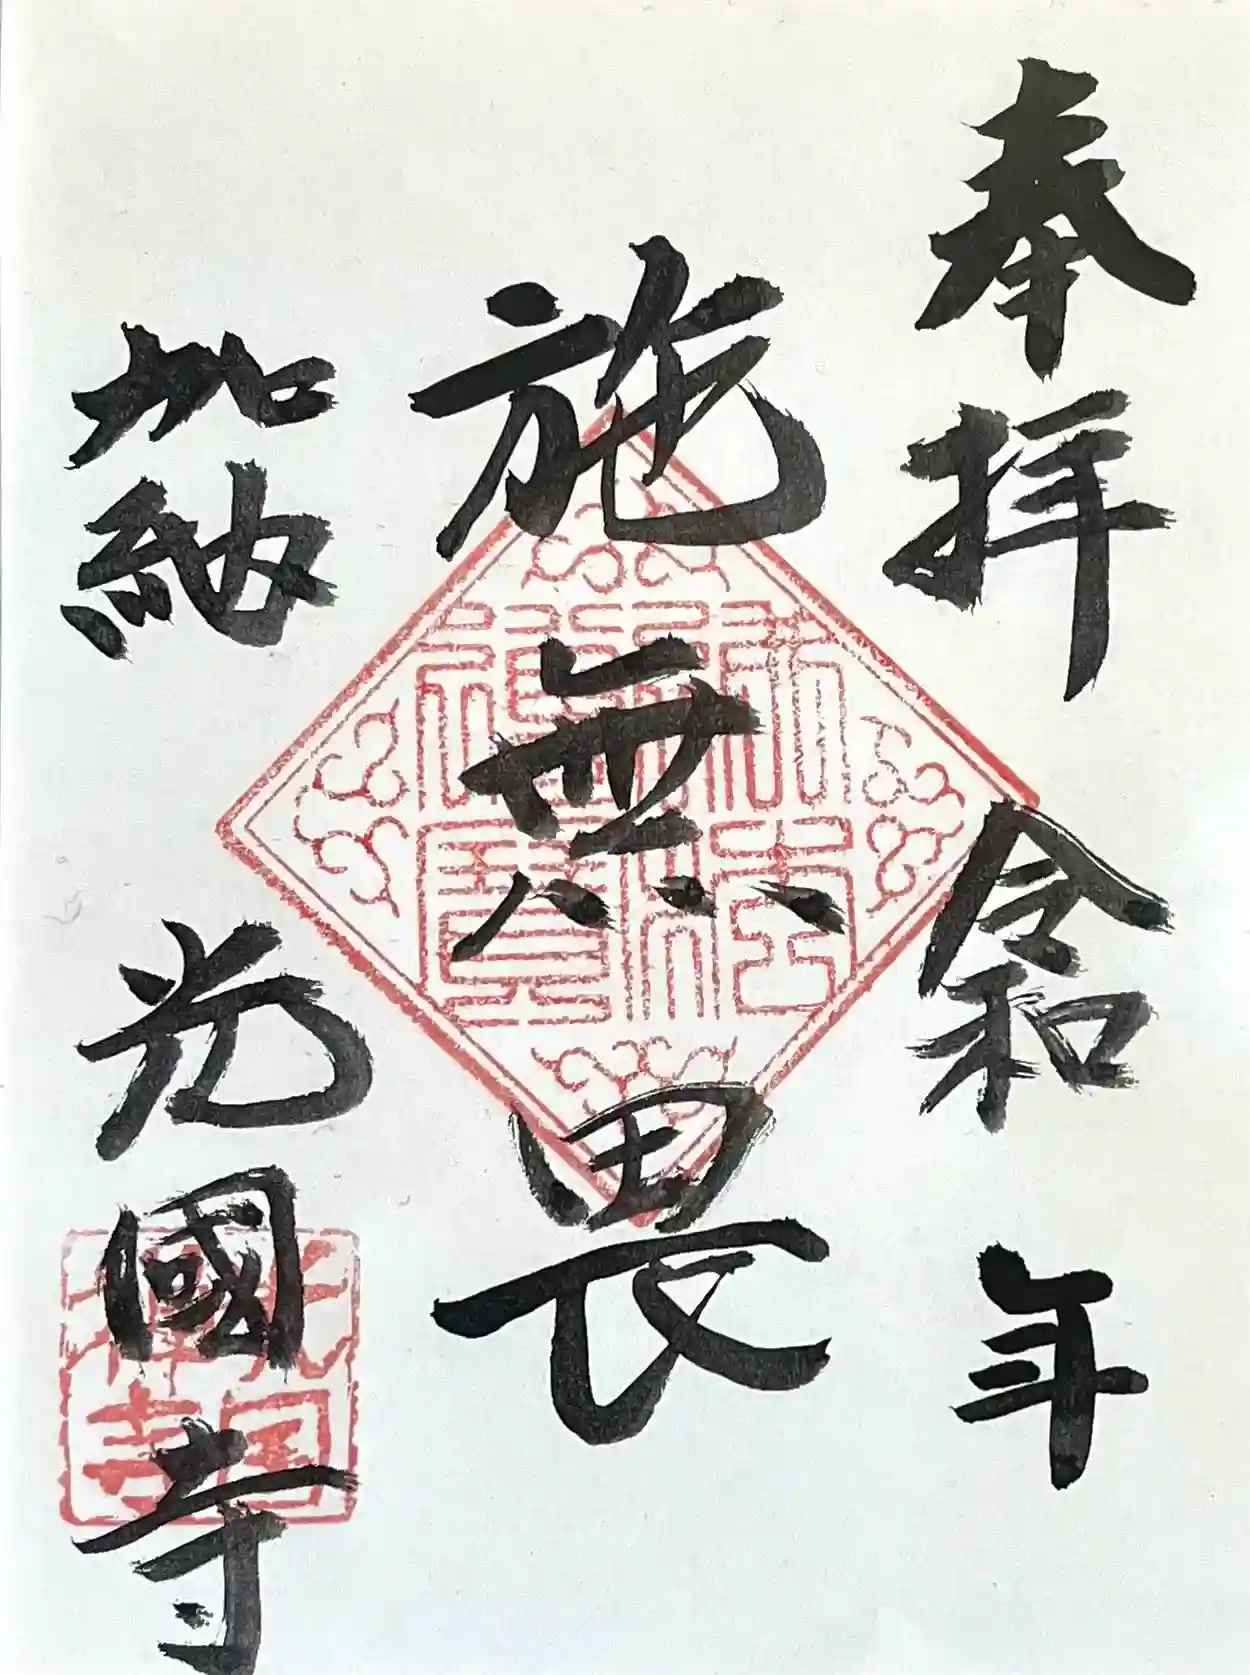 奉拝 令和 年
施無畏
加納 光國寺